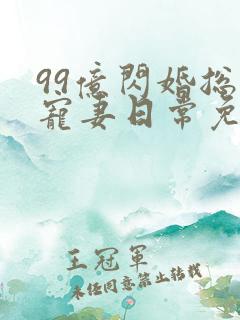 99億閃婚总
寵妻日常免
王冠軍
未经同意禁止转载